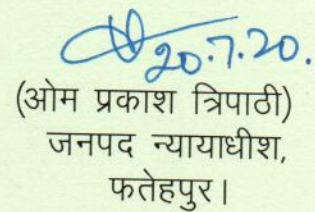 20.7.20.
(ओम प्रकाश त्रिपाठी)
जनपद न्यायाधीश,
फतेहपुर।